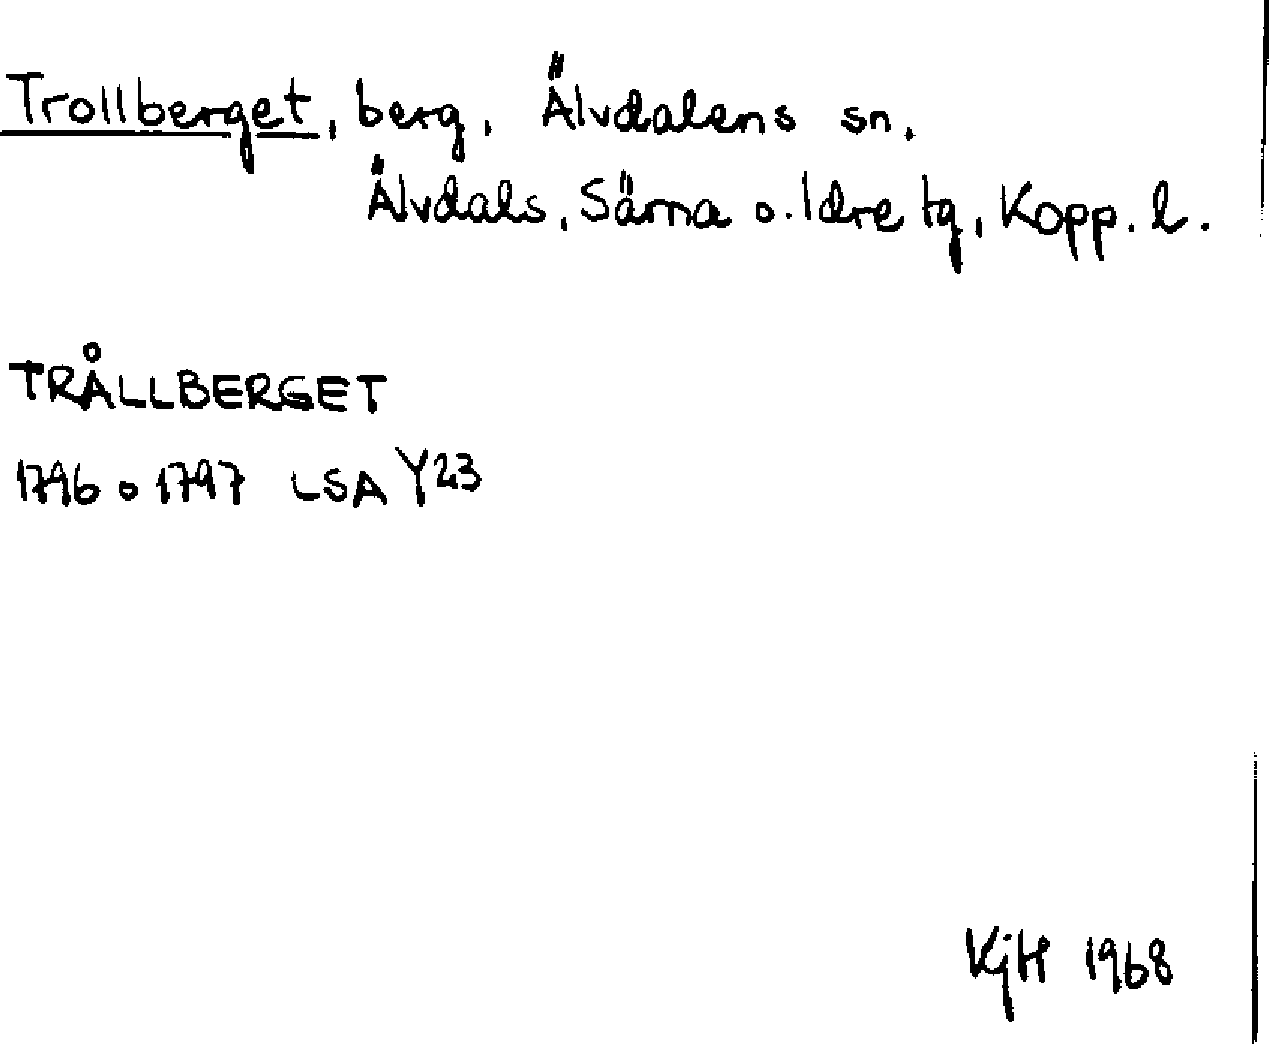 Trollberget, berg, Älvdalens sn,
Älvdals, Särna o. Idre tg, Kopp. l.
TRÅLLBERGET
1796 o 1797 LSA Y23
KjH 1968